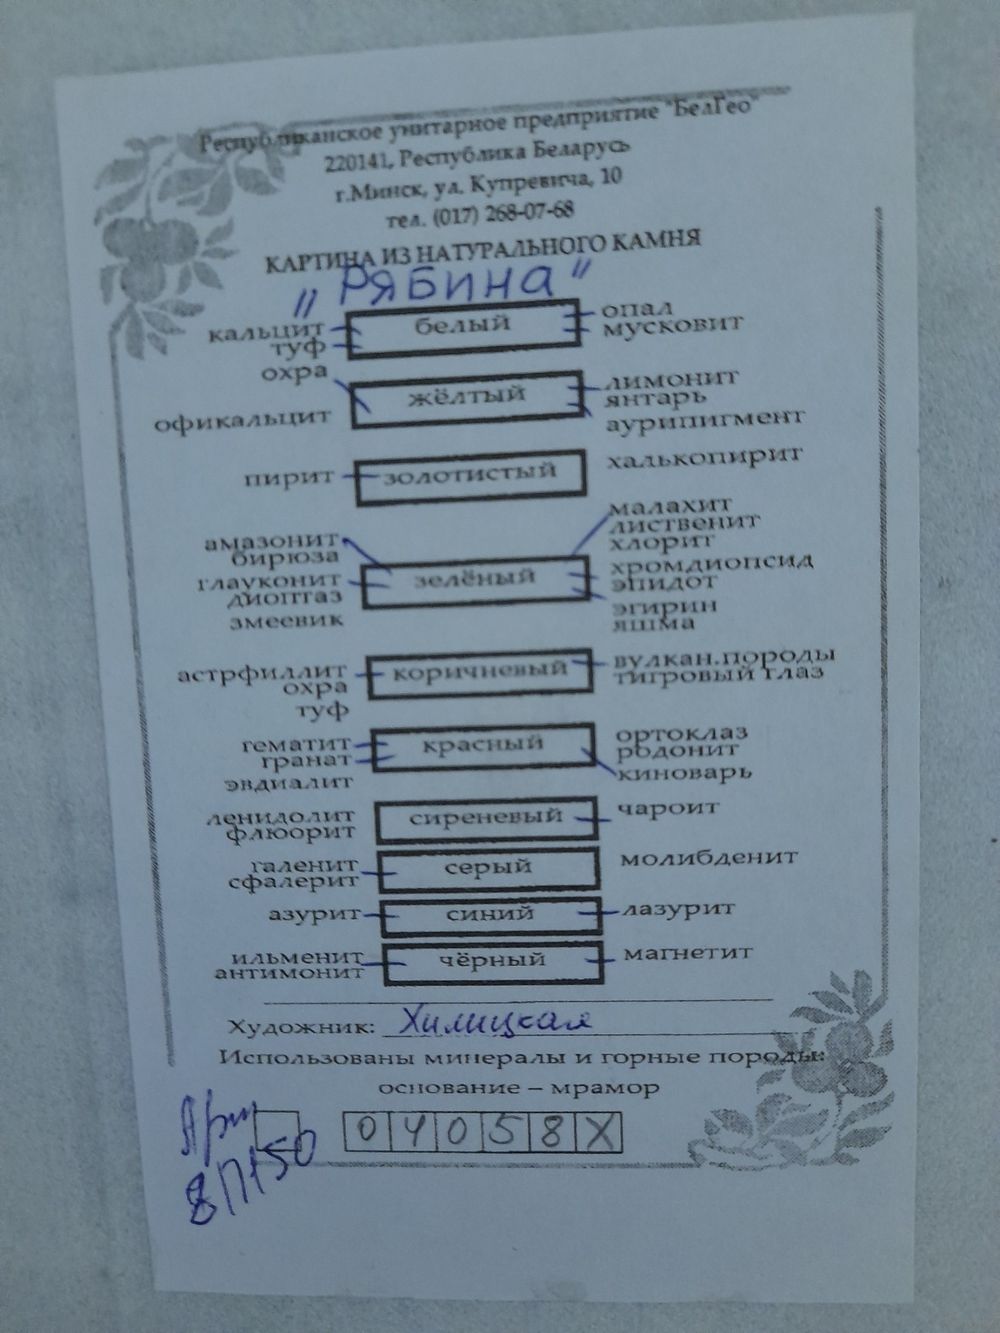 Республиканское унитарное предприятие "БелГео"
220141, Республика Беларусь
г.Минск, ул. Купревича, 10
тел. (017) 268-07-68
КАРТИНА ИЗ НАТУРАЛЬНОГО КАМНЯ
"РЯБИНА"
кальцит белый опал
туф мусковит
охра жёлтый лимонит
янтарь
офикальцит аурипигмент
пирит золотистый халькопирит
малахит
лиственит
амазонит хлорит
бирюза хромдиопсид
глауконит зелёный эпидот
диоптаз эгирин
змеевик яшма
астрфиллит коричневый вулкан.породы
охра тигровый глаз
туф
гематит красный ортоклаз
гранат родонит
эвдиалит киноварь
лепидолит сиреневый чароит
флюорит
галенит серый молибденит
сфалерит
азурит синий лазурит
ильменит чёрный магнетит
антимонит
Художник: Хилицкая
Использованы минералы и горные породы:
основание – мрамор
04058X